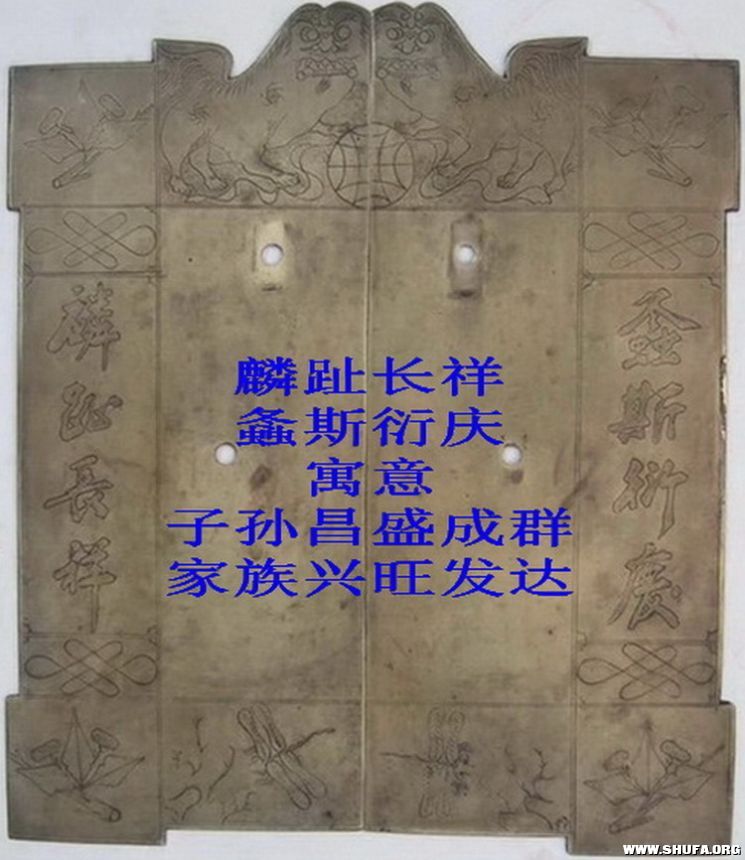 螽斯衍慶
麟趾長祥
麟趾长祥
螽斯衍庆
寓意
子孙昌盛成群
家族兴旺发达
WWW.SHUFA.ORG